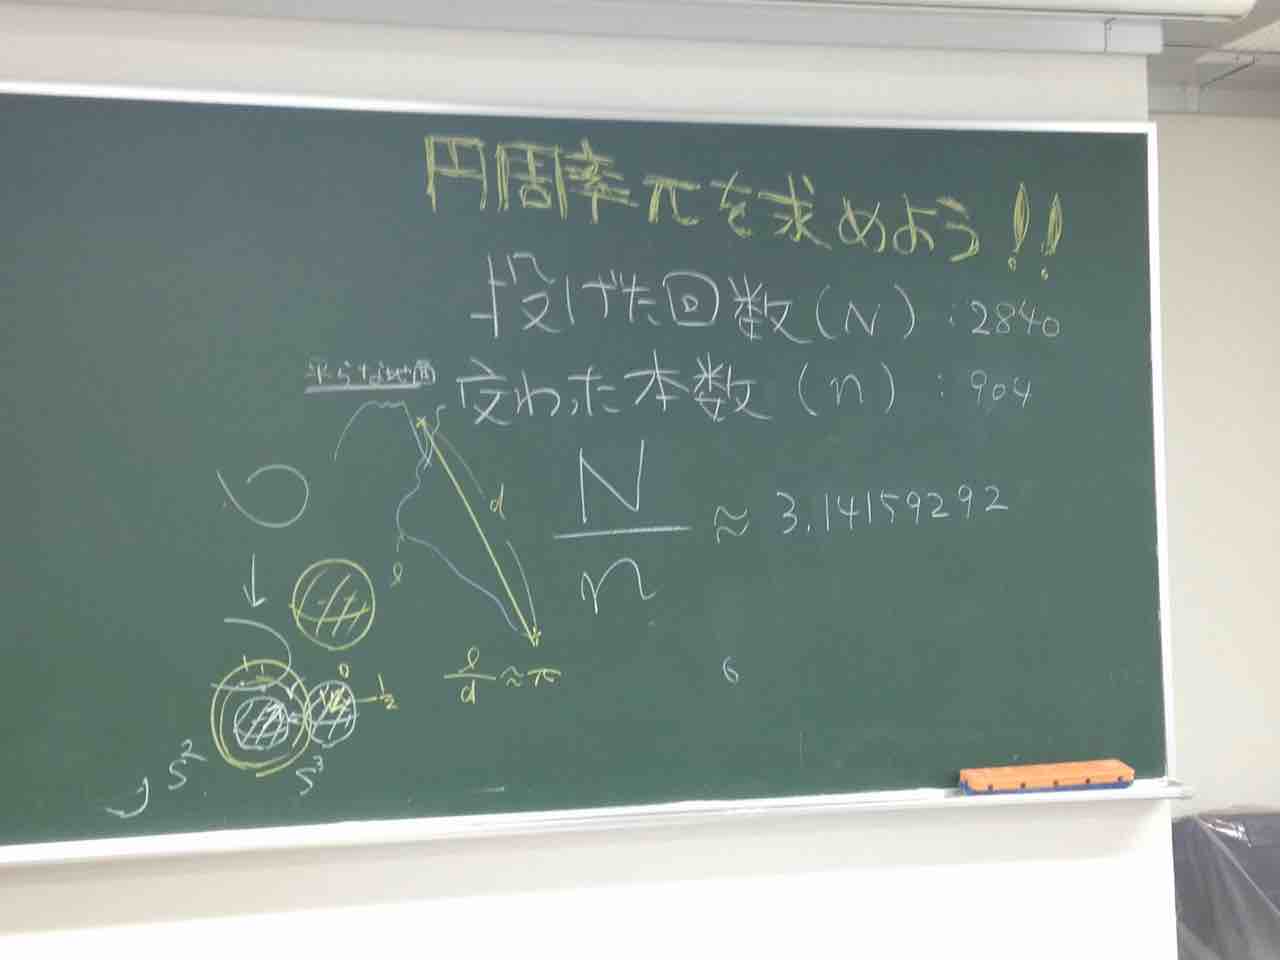 円周率πを求めよう!!
投げた回数(N):2840
交わった本数(n):904
平らな地面
N/n ≈ 3.14159292
d
l
l/d ≈ π
6
0
1/2
S²
S³